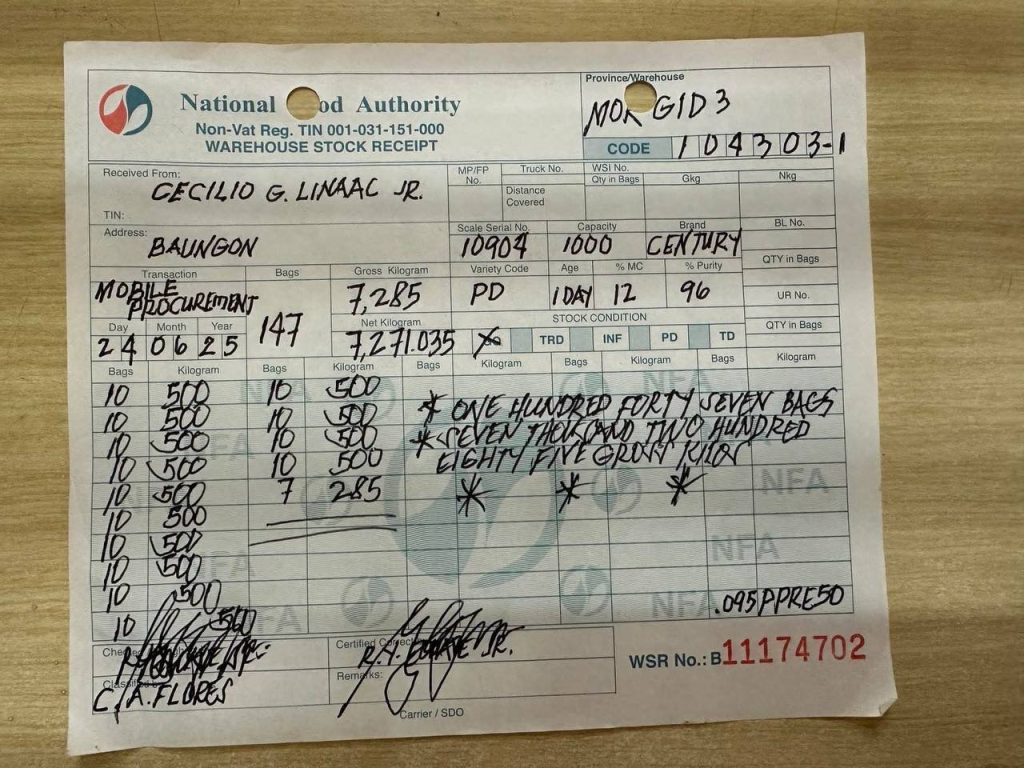 National Food Authority
Non-Vat Reg. TIN 001-031-151-000
WAREHOUSE STOCK RECEIPT
Province/Warehouse
MOR GID 3
CODE 104303-1
Received From:
CECILIO G. LINAAC JR.
TIN:
MP/FP No.
Truck No.
Distance Covered
WSI No.
Qty in Bags
Gkg
Nkg
Address:
BAUNGON
Scale Serial No.
10904
Capacity
1000
Brand
CENTURY
BL No.
Transaction
MOBILE PROCUREMENT
Bags
147
Gross Kilogram
7,285
Variety Code
PD
Age
1 DAY
% MC
12
% Purity
96
QTY in Bags
UR No.
Day Month Year
24 06 25
Net Kilogram
7,271.035
STOCK CONDITION
TRD INF PD TD
QTY in Bags
Bags Kilogram Bags Kilogram Bags Kilogram Bags Kilogram Bags Kilogram
10 500 10 500
10 500 10 500 * ONE HUNDRED FORTY SEVEN BAGS
10 500 10 500 * SEVEN THOUSAND TWO HUNDRED
10 500 10 500 EIGHTY FIVE GROSS KILOS
10 500 7 285 * * *
10 500
10 500
10 500
10 500
10 500
.095PPRE50
NFA
NFA
NFA
NFA
NFA
NFA
NFA
NFA
Certified Correct
JR.
Remarks:
C. A. FLORES
Carrier / SDO
WSR No.: B11174702